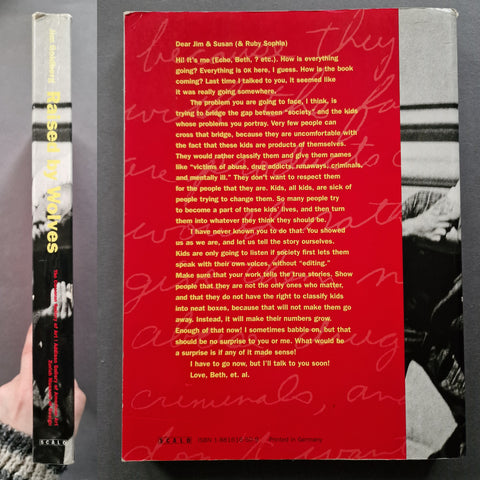 Jim Goldberg
Raised by Wolves
SCALO
Dear Jim & Susan (& Ruby Sophia)
Hi! It's me (Echo, Beth, ? etc.). How is everything
going? Everything is OK here, I guess. How is the book
coming? Last time I talked to you, it seemed like
it was really going somewhere.
The problem you are going to face, I think, is
trying to bridge the gap between "society" and the kids
whose problems you portray. Very few people can
cross that bridge, because they are uncomfortable with
the fact that these kids are products of themselves.
They would rather classify them and give them names
like "victims of abuse, drug addicts, runaways, criminals,
and mentally ill." They don't want to respect them
for the people that they are. Kids, all kids, are sick of
people trying to change them. So many people try
to become a part of these kids' lives, and then turn
them into whatever they think they should be.
I have never known you to do that. You showed
us as we are, and let us tell the story ourselves.
Kids are only going to listen if society first lets them
speak with their own voices, without "editing."
Make sure that your work tells the true stories. Show
people that they are not the only ones who matter,
and that they do not have the right to classify kids
into neat boxes, because that will not make them go
away. Instead, it will make their numbers grow.
Enough of that now! I sometimes babble on, but that
should be no surprise to you or me. What would be
a surprise is if any of it made sense!
I have to go now, but I'll talk to you soon!
Love, Beth, et. al.
SCALO ISBN Printed in Germany
because they
criminals, and
don't want